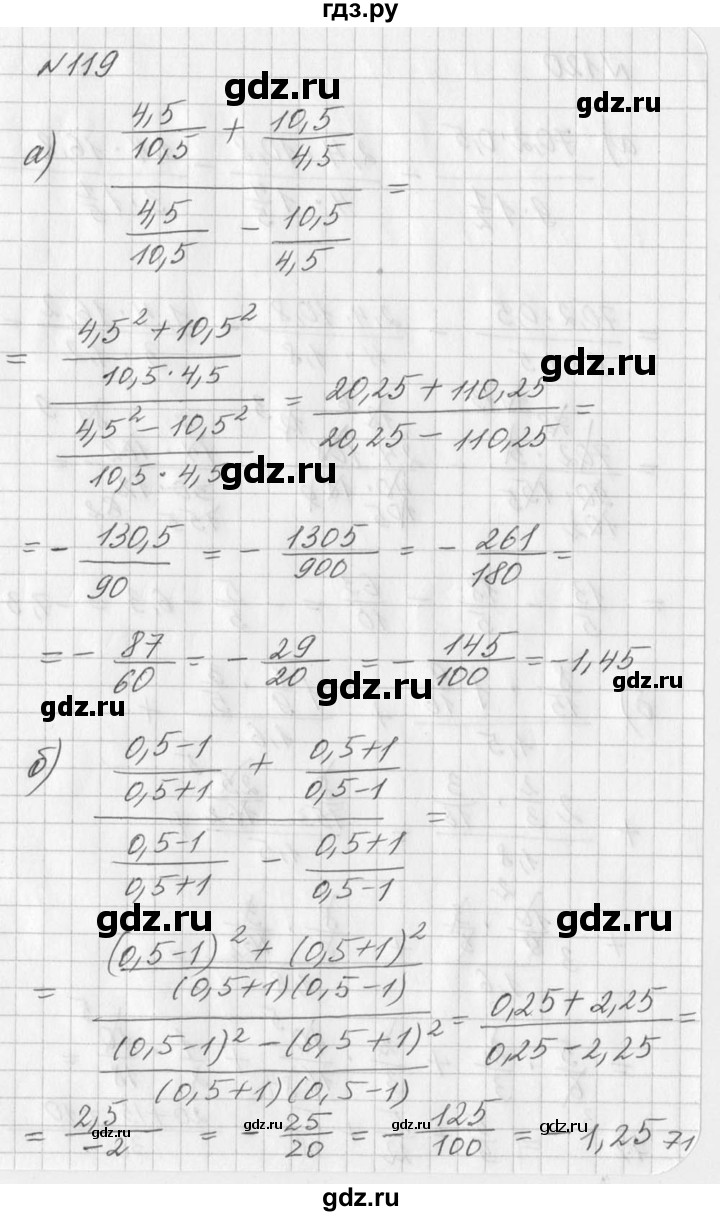 гдз.ру
№119
gdz.ru
gdz.ru
а) (4,5/10,5 + 10,5/4,5) / (4,5/10,5 - 10,5/4,5) =
= ((4,5² + 10,5²)/(10,5 · 4,5)) / ((4,5² - 10,5²)/(10,5 · 4,5)) = (20,25 + 110,25)/(20,25 - 110,25) =
gdz.ru
gdz.ru
= - 130,5/90 = - 1305/900 = - 261/180 =
= - 87/60 = - 29/20 = - 145/100 = -1,45
gdz.ru
gdz.ru
gdz.ru
б) ((0,5-1)/(0,5+1) + (0,5+1)/(0,5-1)) / ((0,5-1)/(0,5+1) - (0,5+1)/(0,5-1)) =
gdz.ru
gdz.ru
= (((0,5-1)² + (0,5+1)²)/((0,5+1)(0,5-1))) / (((0,5-1)² - (0,5+1)²)/((0,5+1)(0,5-1))) = (0,25 + 2,25)/(0,25 - 2,25) =
= 2,5/-2 = - 25/20 = - 125/100 = - 1,25
gdz.ru
gdz.ru
gdz.ru
gdz.ru
71
gdz.ru